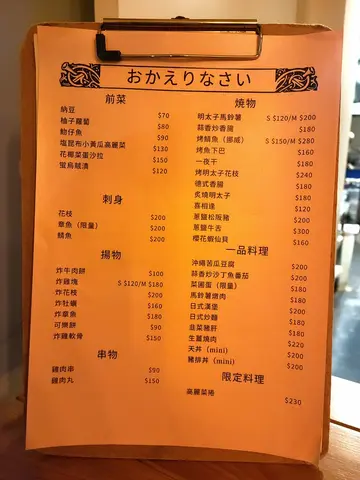 おかえりなさい
前菜
納豆 $70
柚子蘿蔔 $80
魩仔魚 $90
塩昆布小黃瓜高麗菜 $130
花椰菜蛋沙拉 $150
螢烏賊漬 $120
刺身
花枝 $200
章魚（限量） $200
鯖魚 $200
揚物
炸牛肉餅 $100
炸雞塊 S $120/M $180
炸花枝 $200
炸牡蠣 $160
炸章魚 $180
可樂餅 $90
炸雞軟骨 $150
串物
雞肉串 $90
雞肉丸 $150
燒物
明太子馬鈴薯 S $120/M $200
蒜香炒香腸 $180
烤鯖魚（挪威） S $150/M $280
烤魚下巴 $160
一夜干 $180
烤明太子花枝 $240
德式香腸 $180
炙燒明太子 $180
喜相逢 $120
蔥鹽松阪豬 $200
蔥鹽牛舌 $300
櫻花蝦仙貝 $160
一品料理
沖繩苦瓜豆腐 $200
蒜香炒沙丁魚番茄 $200
菜圃蛋（限量） $180
馬鈴薯燉肉 $180
日式漢堡 $200
日式炒麵 $180
韭菜豬肝 $180
生薑燒肉 $220
天丼（mini） $200
豬排丼（mini） $200
限定料理
高麗菜捲 $230